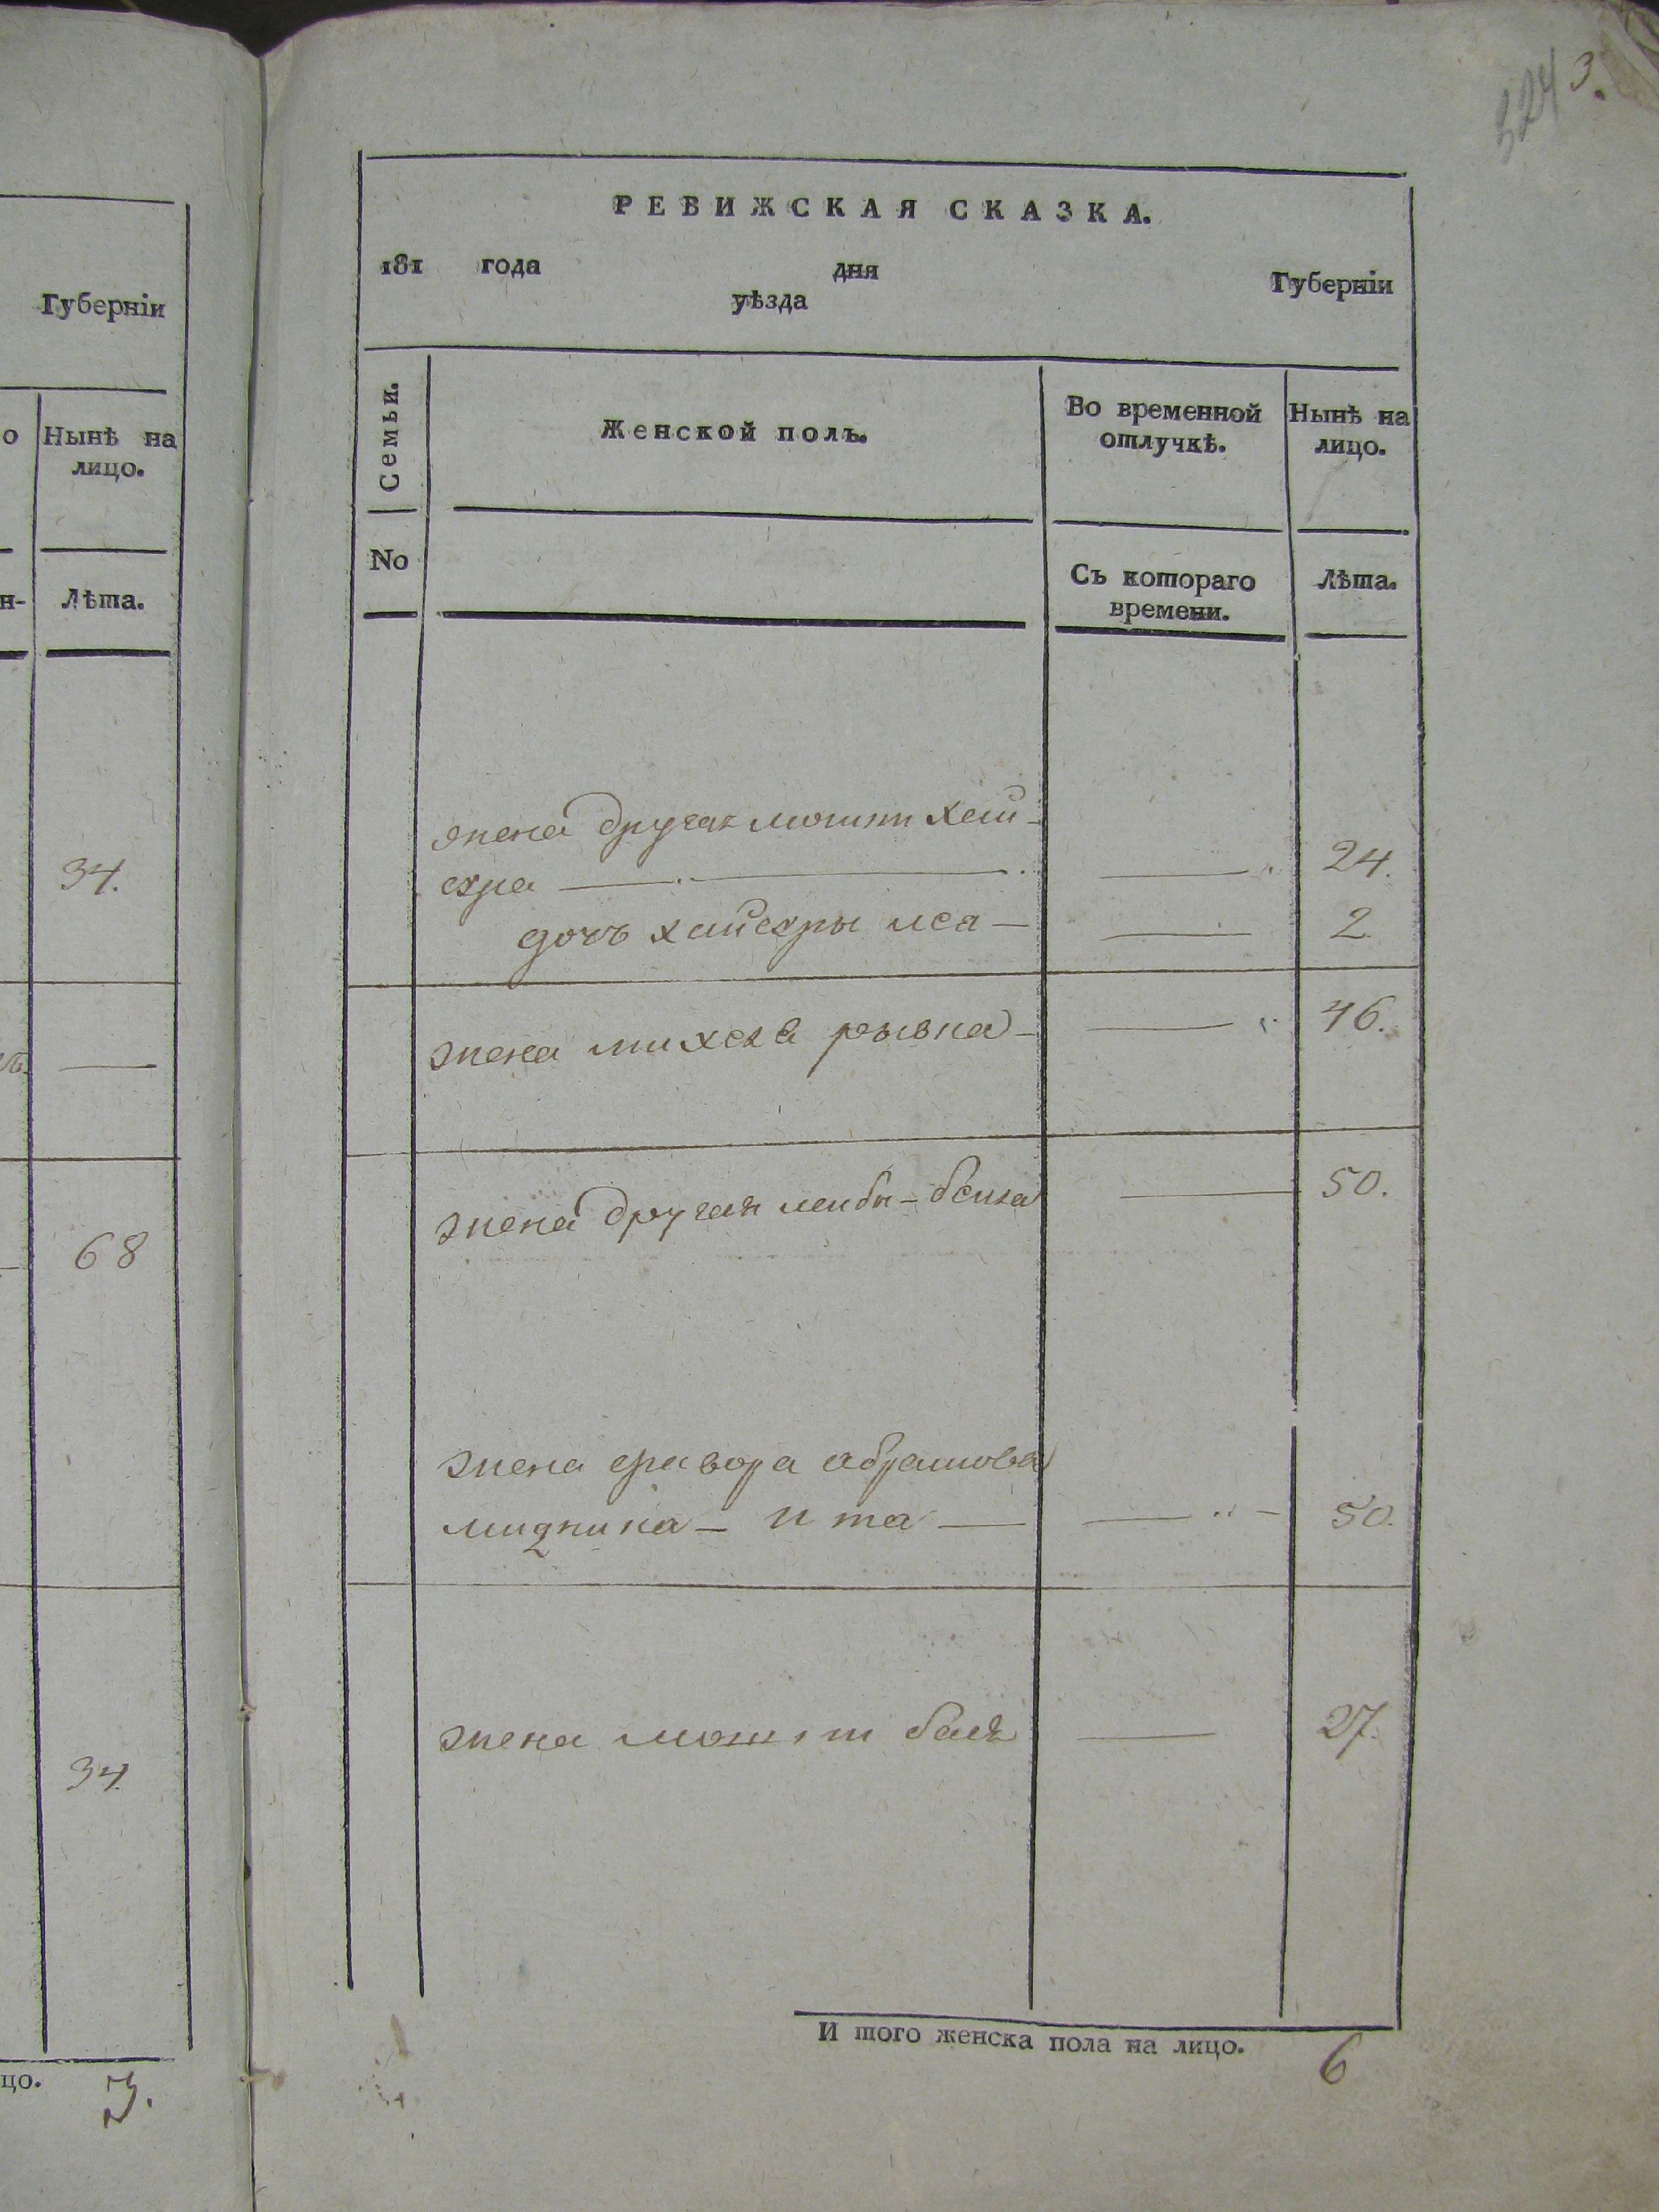 Губерніи
о
Нынѣ на
лицо.
н-
Лѣта.
34.
68
34.
цо.
3.
324
3.
РЕВИЖСКАЯ СКАЗКА.
181 года дня Губерніи
уѣзда
Семьи.
Женской полъ.
Во временной
отлучкѣ.
Нынѣ на
лицо.
No
Съ котораго
времени.
Лѣта.
жена другая мошки хай-
24.
дочь 2
жена рывка 46.
жена другая лейбы - бейла 50.
жена абрамова
ита 50.
жена 27.
И того женска пола на лицо. 6